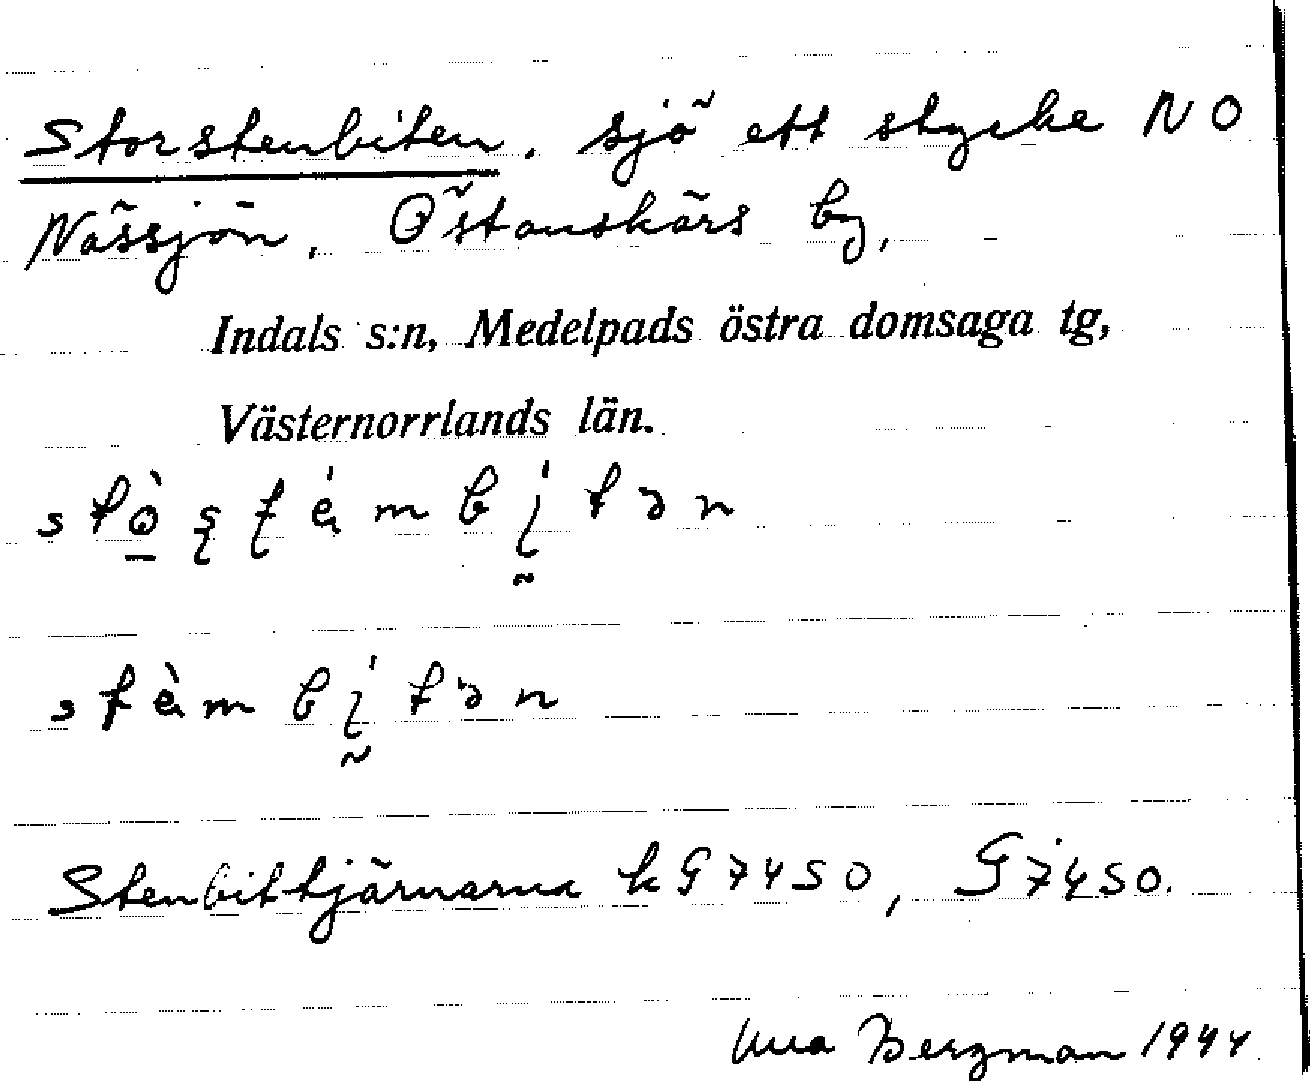 Storstenbiten. sjö ett stycke NO
Nässjön. Östanskärs by,
Indals s:n, Medelpads östra domsaga tg,
Västernorrlands län.
Stenbittjärnarna kG7450, G7450.
Bergman 1944